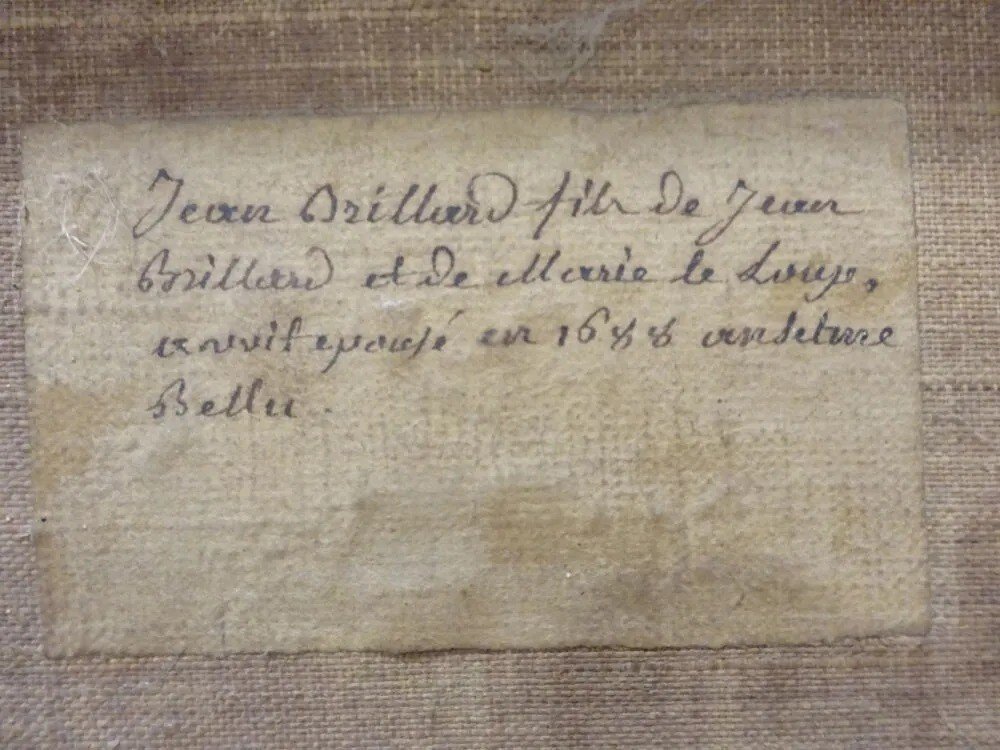 Jean Brillard fils de Jean
Brillard et de Marie le Loup,
avoit epousé en 1688